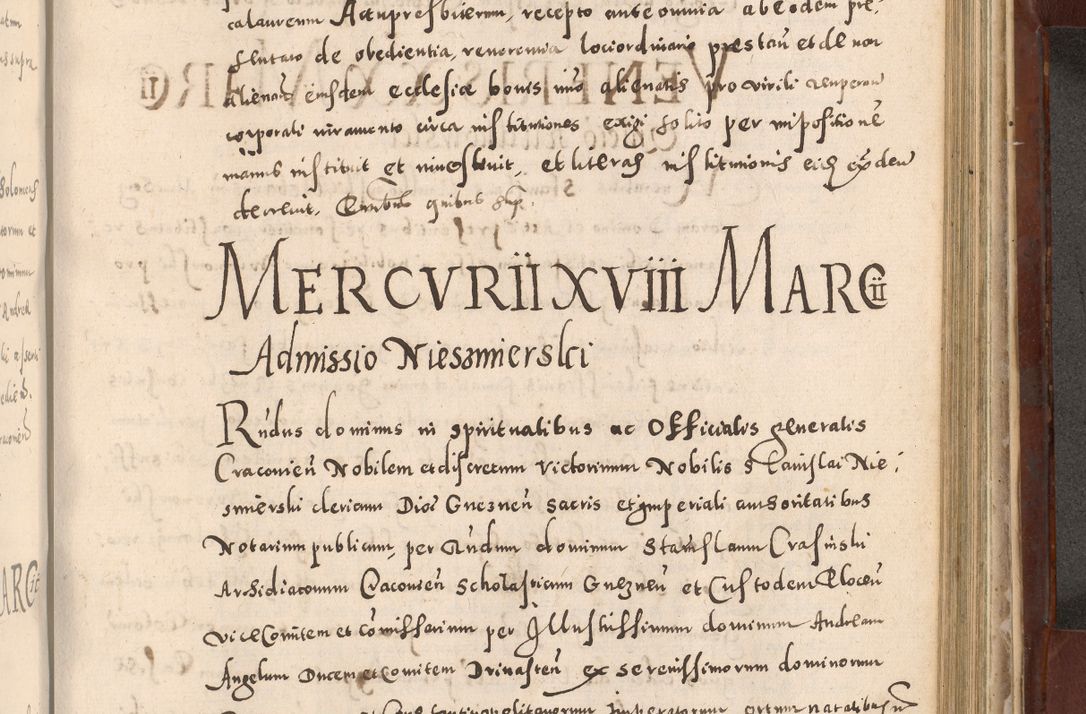 calaureum Actupresbiterum, recepto ante omnia ab eodem pre,
sentato de obedientia, reverentia loci ordinario prestan̄ et de non
alienan̄ eiusdem ecclesiæ bonis imo alienatis pro virili recuperan̄
corporali iuramento circa institutiones exigi solito per impositionē
manus instituit et investivit, et literas institutionis eidem ex den̄
decrevit. quibus
MERCVRII XVIII MARCII
Admissio Niesmierski
Rn̄dus dominus in spiritualibus ac Officialis generalis
Cracovien̄ Nobilem et discretum Victorinum Nobilis Stanislai Nie,
smierski clericum Dioc̄ Gneznen̄ sacris et imperiali authoritatibus
Notarium publicum, per Rn̄dum dominum Stanislaum Crasinski
Archidiaconum Cracovien̄ Scholasticum Gneznen̄ et Custodem Plocen̄
viceComitem et Comissarium per Illustrissimum dominum Andream
Angelum Ducem et Comitem Drivasten̄ ex serenissimorum dominorum
Constantinopolitanorum Imperatorum ortum natalibus
Solomens
torum et
Andrea
ARCII